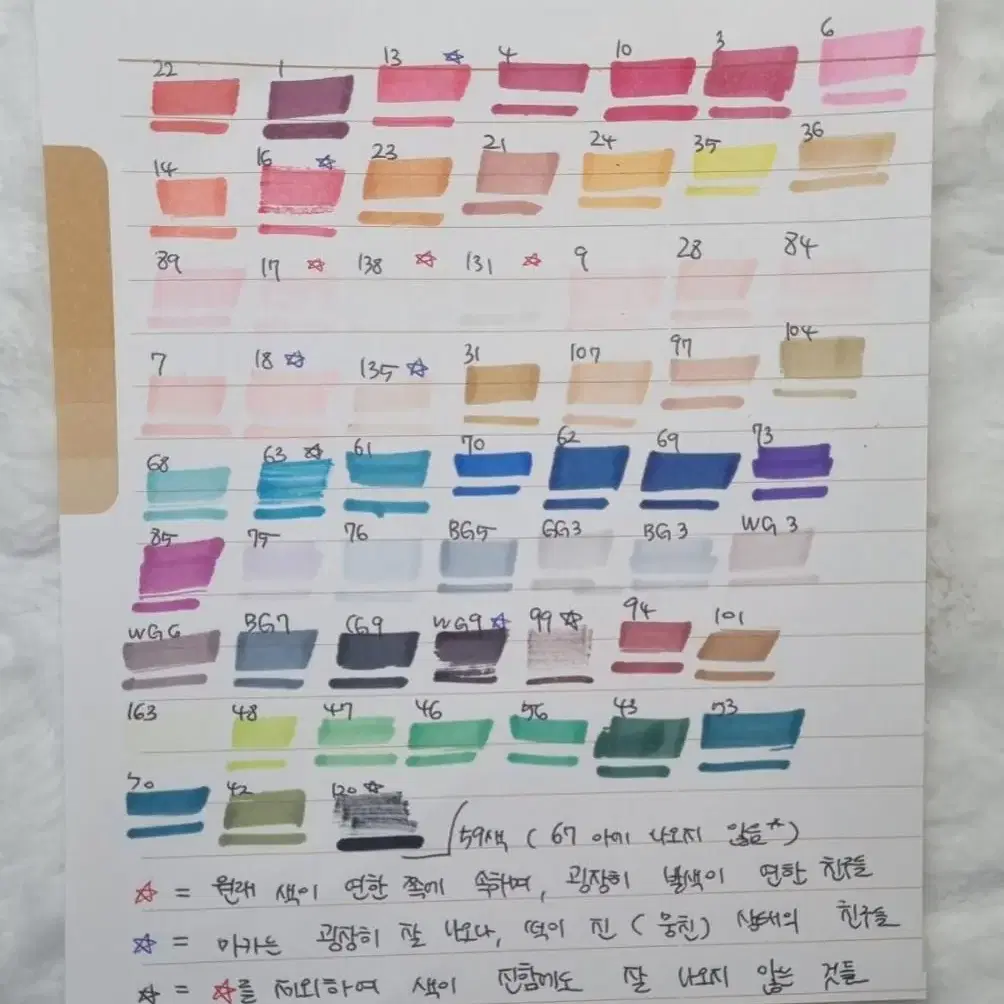 22 1 13 ☆ 4 10 3 6
14 16 ☆ 23 21 24 35 36
89 17 ☆ 138 ☆ 131 ☆ 9 28 84
7 18 ☆ 135 ☆ 31 107 97 104
68 63 ☆ 61 70 62 69 73
85 75 76 BG5 GG3 BG3 WG3
WG6 BG7 CG9 WG9 ☆ 99 ☆ 94 101
163 48 47 46 56 43 53
50 42 120 ☆
59색 ( 67 아예 나오지 않음*)
☆ = 원래 색이 연한 쪽에 속하며, 굉장히 발색이 연한 친구들
☆ = 마카는 굉장히 잘 나오나, 떡이 진 ( 뭉친) 상태의 친구들
☆ = ☆를 제외하여 색이 진함에도 잘 나오지 않는 것들